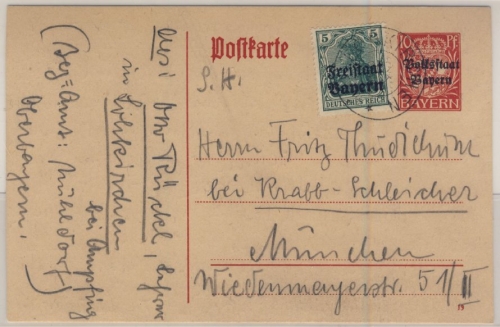 Postkarte
S. H.
5 5
Freistaat
Bayern
DEUTSCHES REICH
10 PF
Volksstaat
Bayern
BAYERN
Herrn Fritz Thudichum
bei Krabb-Schleicher
München
Wiedenmayerstr. 51/II
Otto Rückel,
in Lohkirchen
bei Ampfing
(Bez-Amt: Mühldorf)
Oberbayern.